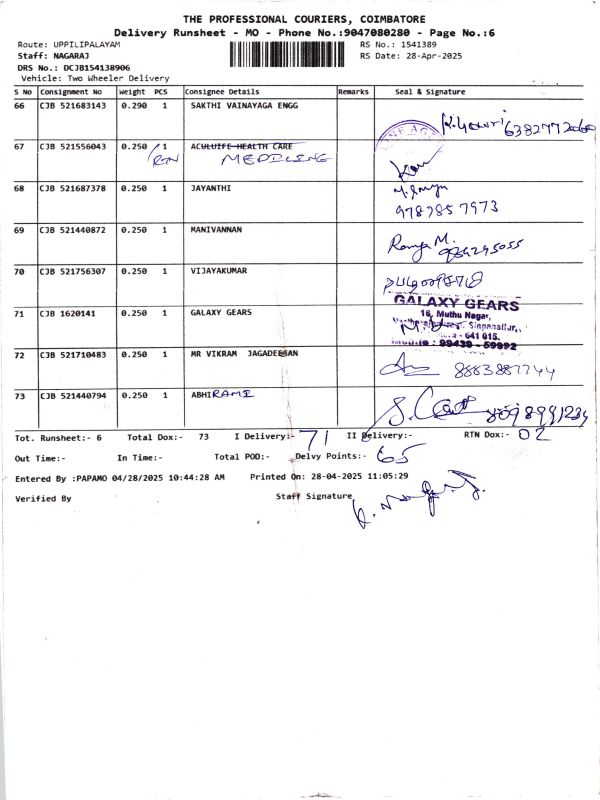 THE PROFESSIONAL COURIERS, COIMBATORE
Delivery Runsheet - MO - Phone No.:9047080280 - Page No.:6
Route: UPPILIPALAYAM
RS No.: 1541389
Staff: NAGARAJ
RS Date: 28-Apr-2025
DRS No.: DCJB154138906
Vehicle: Two Wheeler Delivery
S No Consignment No Weight PCS Consignee Details Remarks Seal & Signature
66 CJB 521683143 0.290 1 SAKTHI VAINAYAGA ENGG
67 CJB 521556043 0.250 1 ACULUIFE HEALTH CARE
RTN MEDILINE
68 CJB 521687378 0.250 1 JAYANTHI
9787857973
69 CJB 521440872 0.250 1 MANIVANNAN
Ramya M.
9894295055
70 CJB 521756307 0.250 1 VIJAYAKUMAR
71 CJB 1620141 0.250 1 GALAXY GEARS
GALAXY GEARS
16, Muthu Nagar,
Singanallur,
- 641 015.
Mobile : 99439 - 59992
72 CJB 521710483 0.250 1 MR VIKRAM JAGADEESAN
8883887744
73 CJB 521440794 0.250 1 ABHIRAMI
8098991234
Tot. Runsheet:- 6 Total Dox:- 73 I Delivery:- 71 II Delivery:- RTN Dox:- 02
Out Time:- In Time:- Total POD:- Delvy Points:- 65
Entered By :PAPAMO 04/28/2025 10:44:28 AM Printed On: 28-04-2025 11:05:29
Verified By Staff Signature